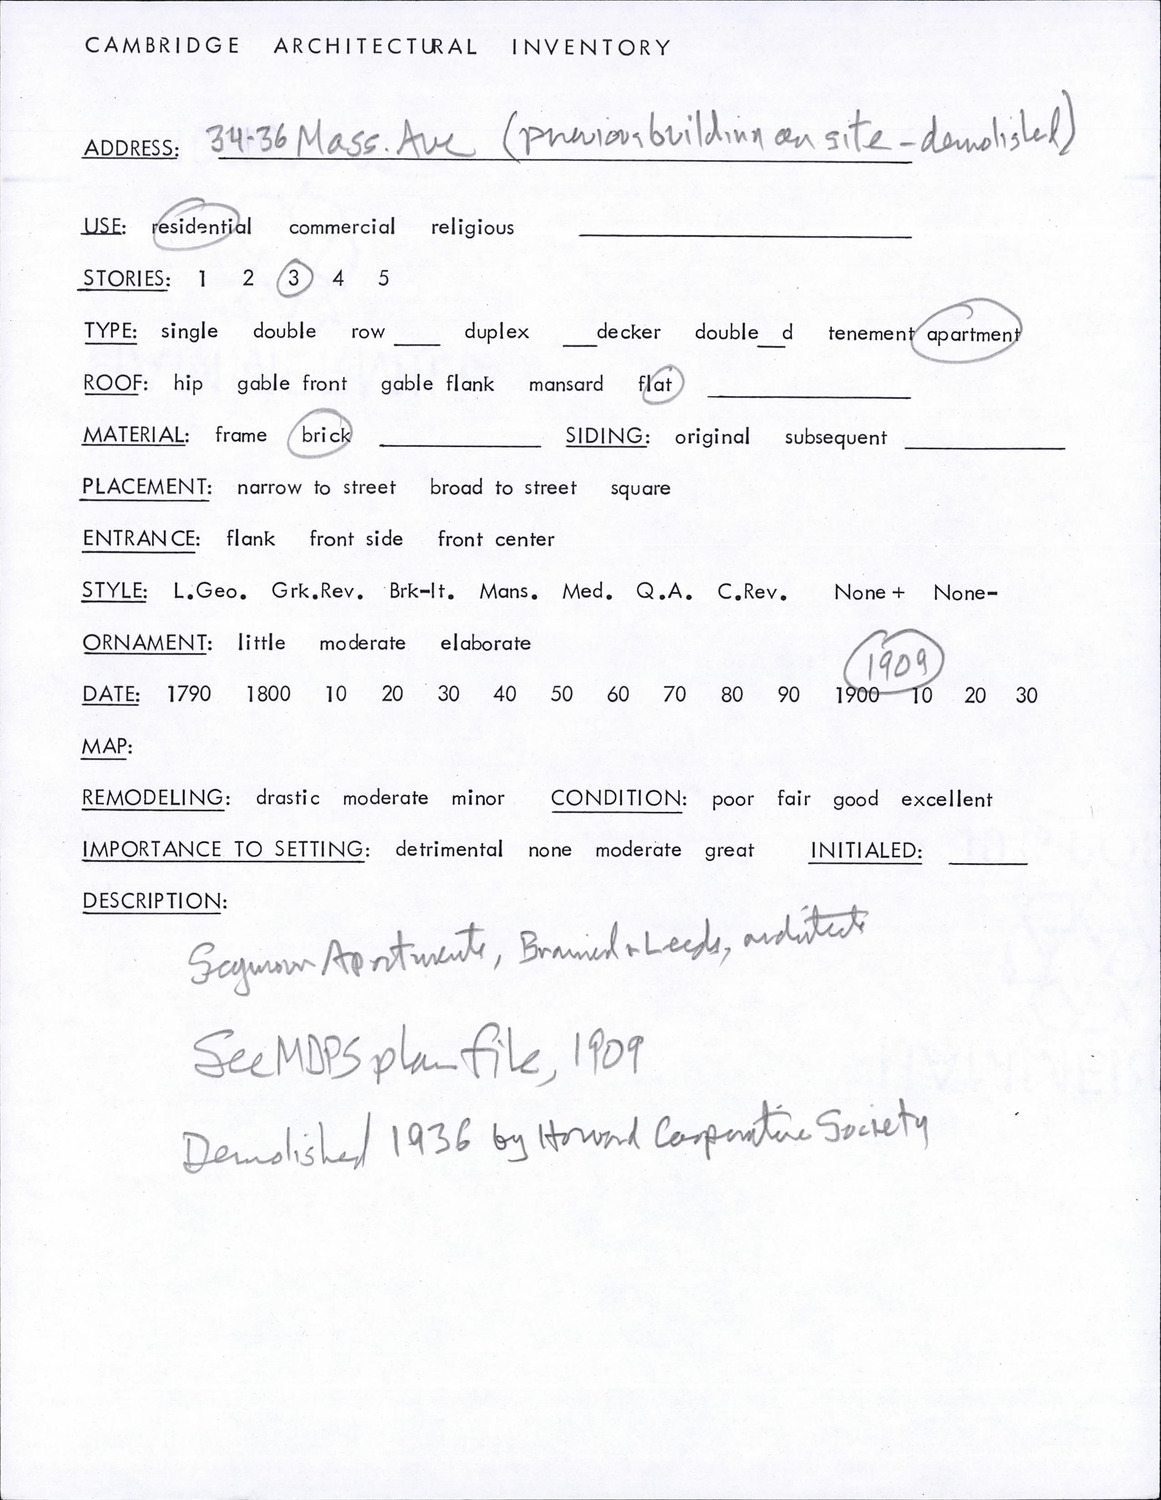 CAMBRIDGE ARCHITECTURAL INVENTORY
ADDRESS: 34-36 Mass. Ave (previous building on site - demolished)
USE: residential commercial religious
STORIES: 1 2 3 4 5
TYPE: single double row ____ duplex ___decker double__d tenement apartment
ROOF: hip gable front gable flank mansard flat
MATERIAL: frame brick SIDING: original subsequent
PLACEMENT: narrow to street broad to street square
ENTRANCE: flank front side front center
STYLE: L.Geo. Grk.Rev. Brk-It. Mans. Med. Q.A. C.Rev. None + None-
ORNAMENT: little moderate elaborate
1909
DATE: 1790 1800 10 20 30 40 50 60 70 80 90 1900 10 20 30
MAP:
REMODELING: drastic moderate minor CONDITION: poor fair good excellent
IMPORTANCE TO SETTING: detrimental none moderate great INITIALED:
DESCRIPTION:
Seymour Apartments, Brainerd & Leeds, architects
See MDPS plan file, 1909
Demolished 1936 by Harvard Cooperative Society